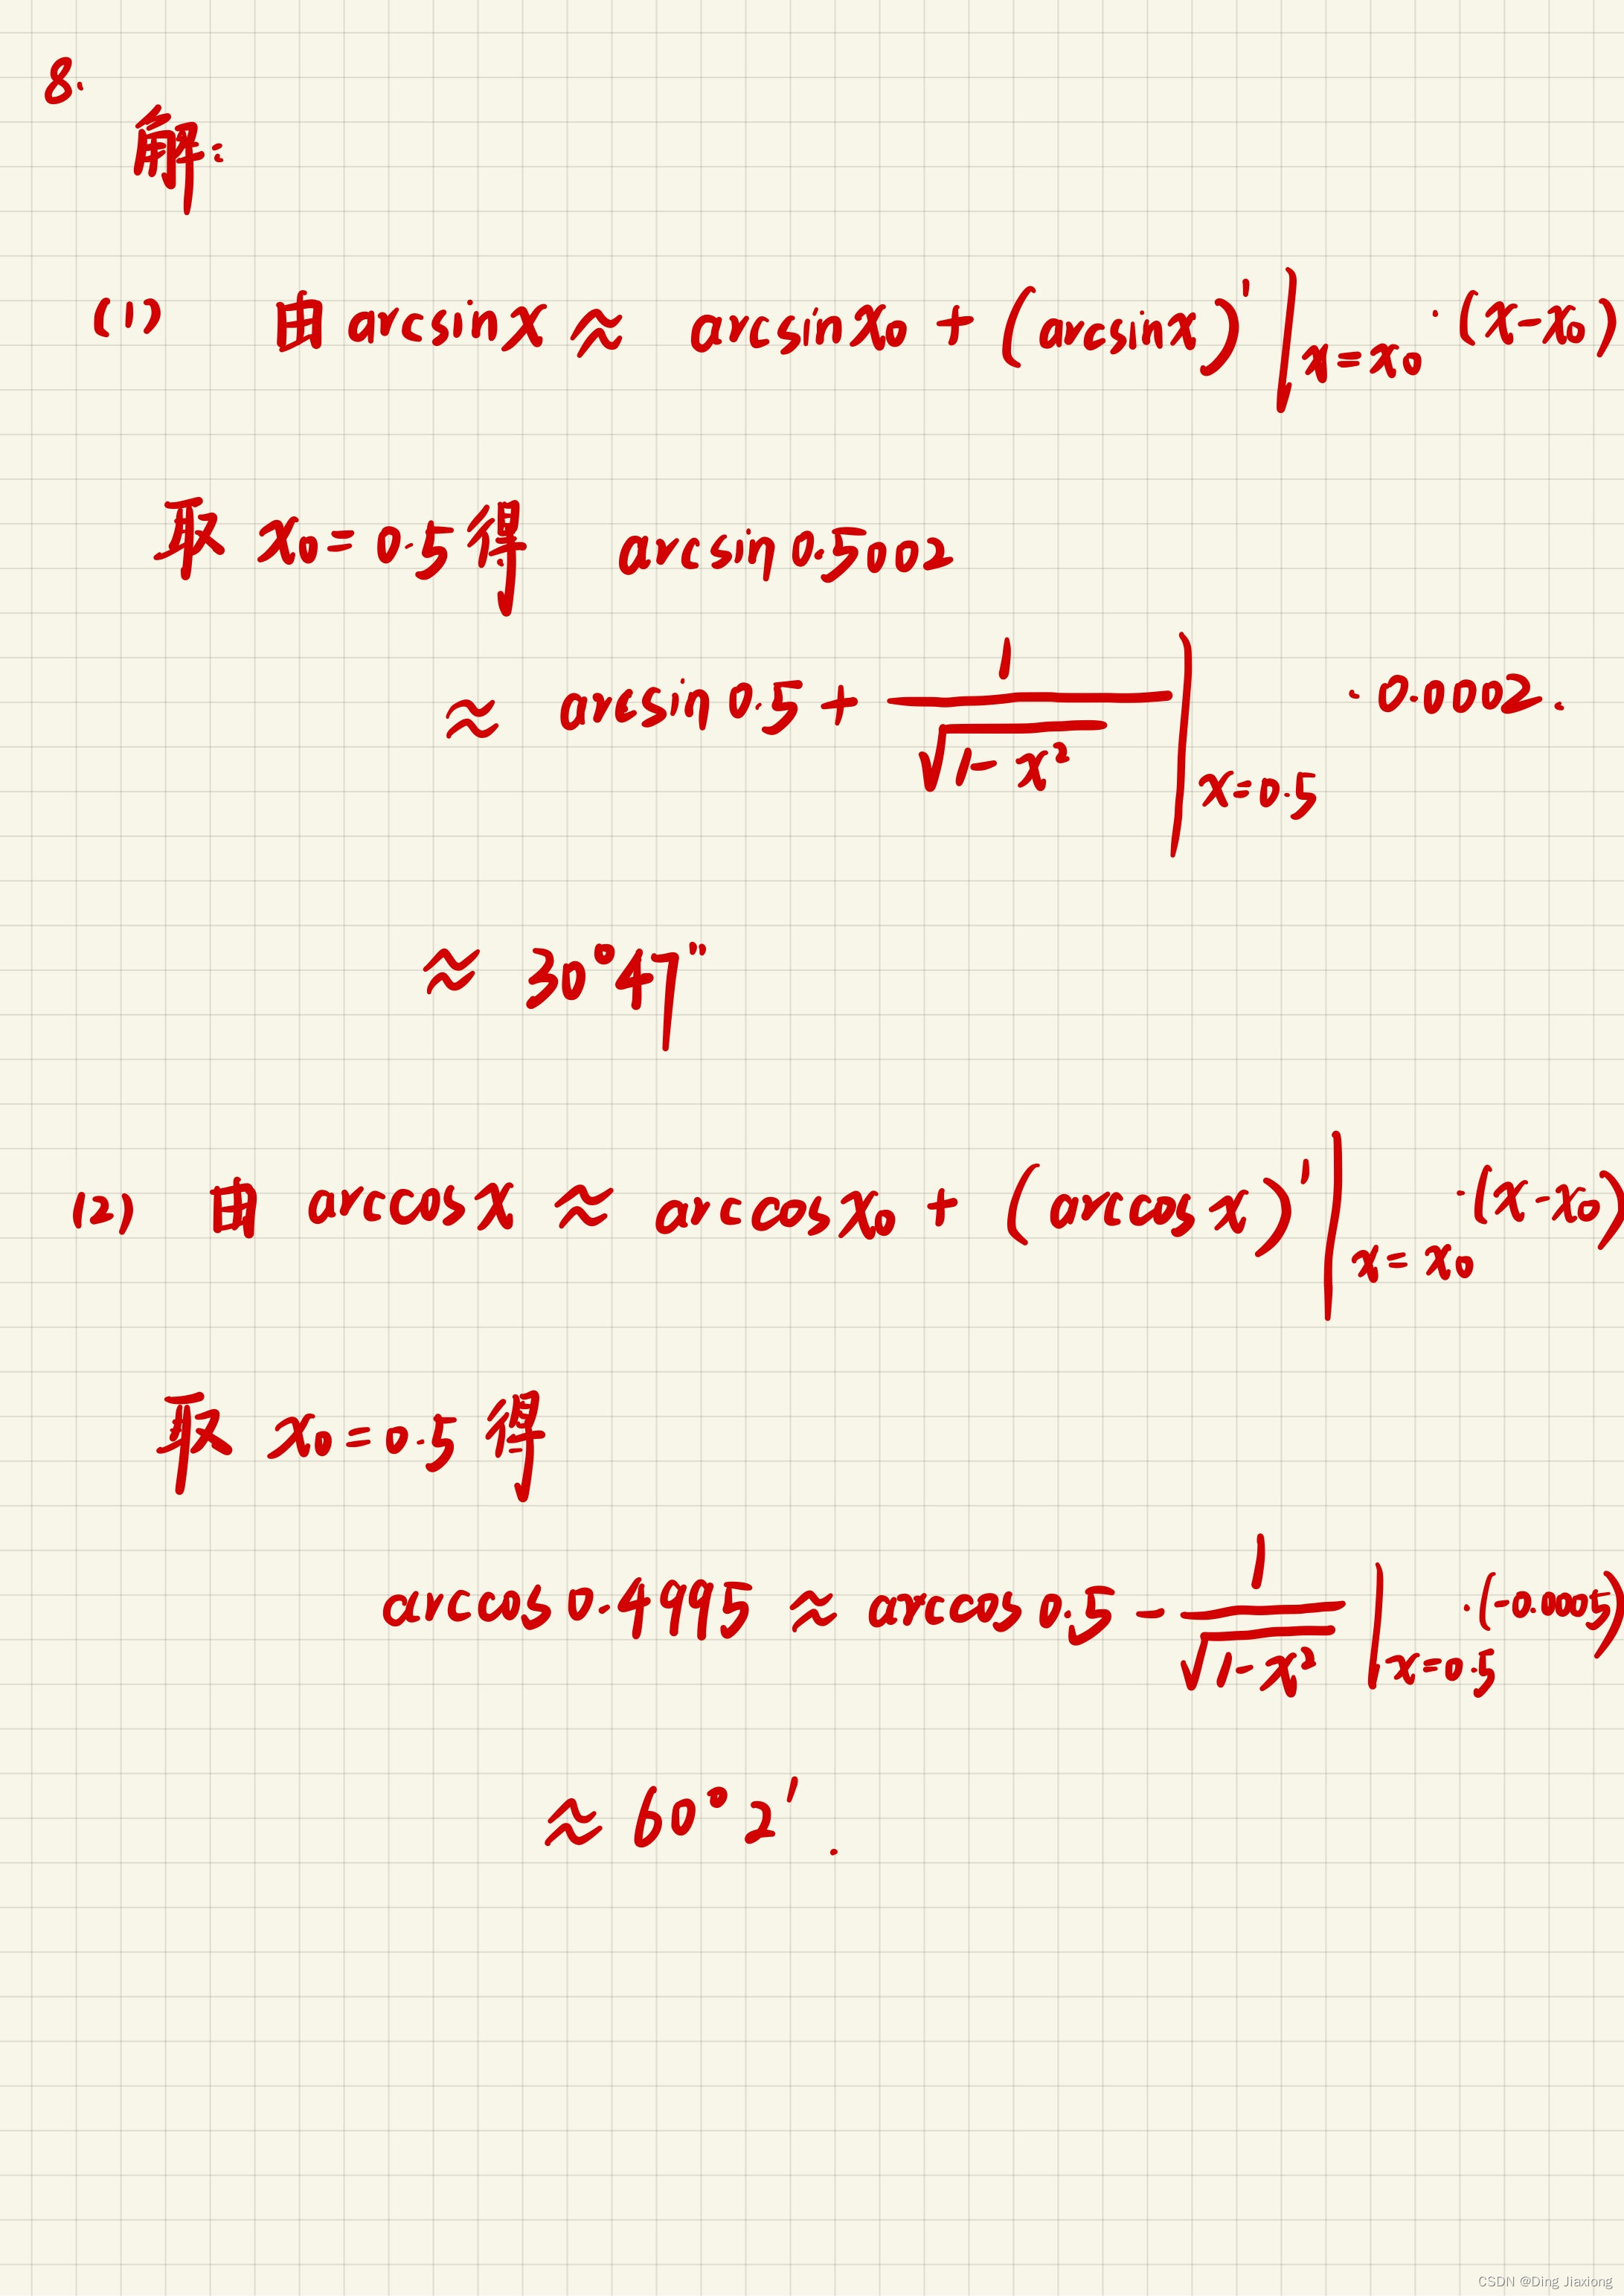 8.
解:
(1) 由 arcsin x ≈ arcsin x₀ + (arcsin x)'|ₓ₌ₓ₀ · (x-x₀)
取 x₀=0.5 得 arcsin 0.5002
≈ arcsin 0.5 + 1/√(1-x²) |ₓ₌₀.₅ · 0.0002.
≈ 30°47"
(2) 由 arccos x ≈ arccos x₀ + (arccos x)'|ₓ₌ₓ₀ · (x-x₀)
取 x₀=0.5 得
arccos 0.4995 ≈ arccos 0.5 - 1/√(1-x²) |ₓ₌₀.₅ · (-0.0005)
≈ 60°2'.
CSDN @Ding Jiaxiong